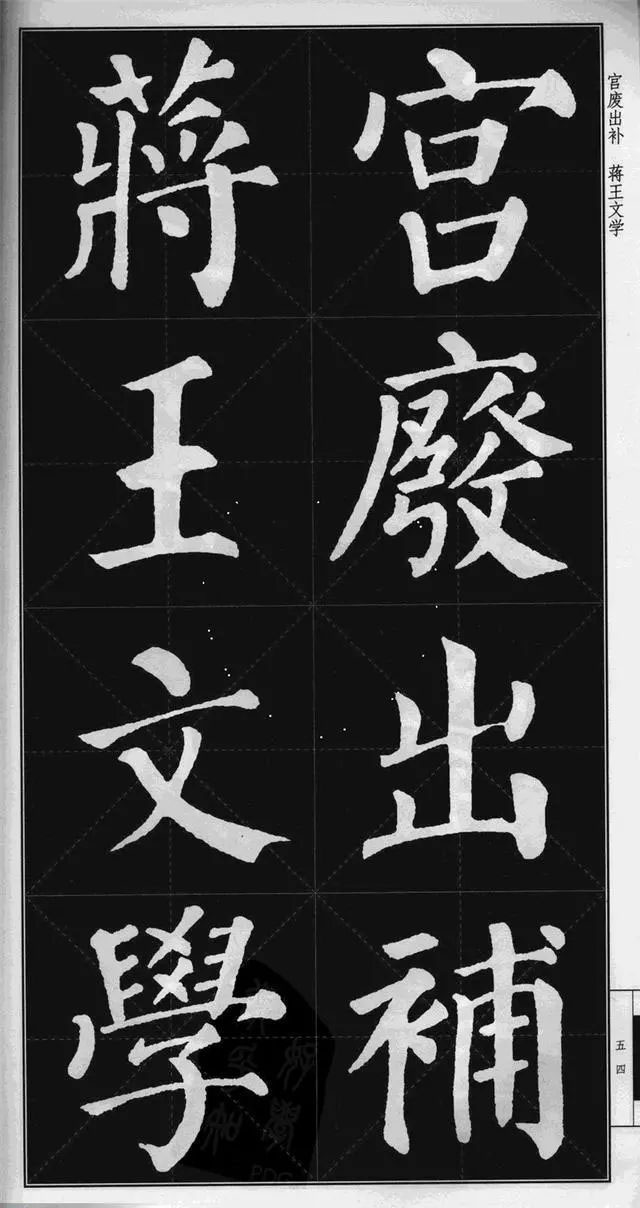 宫廢出補
蔣王文學
宫废出补 蒋王文学
五四
PDG